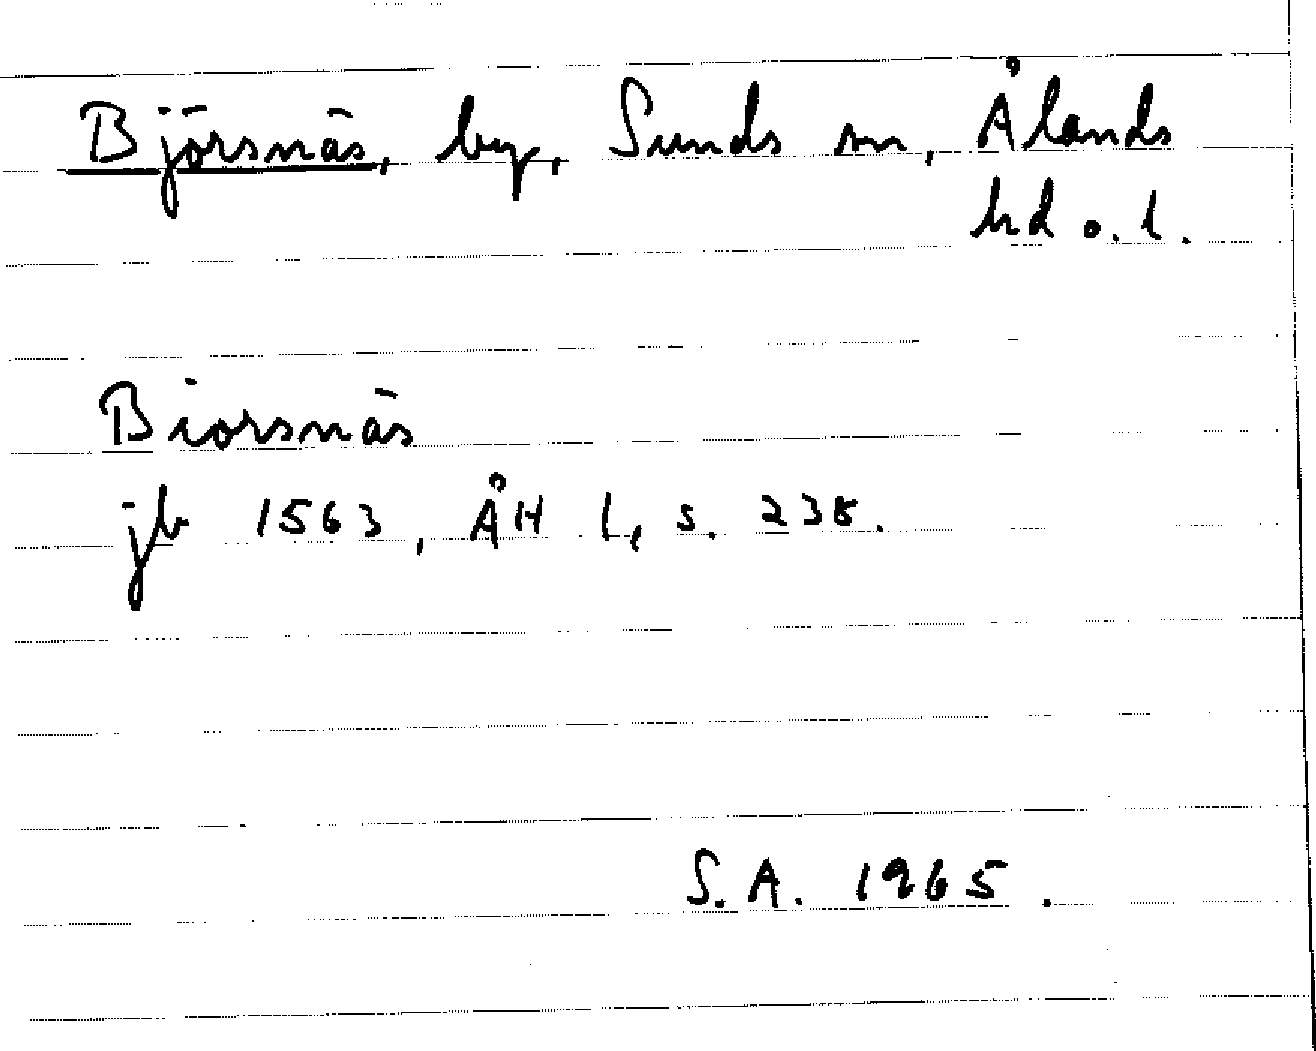 Björsnäs, by, Sunds sn, Ålands
hd o. l.
Biorsnäs
jb 1563, ÅH I, s. 238.
S.A. 1965.